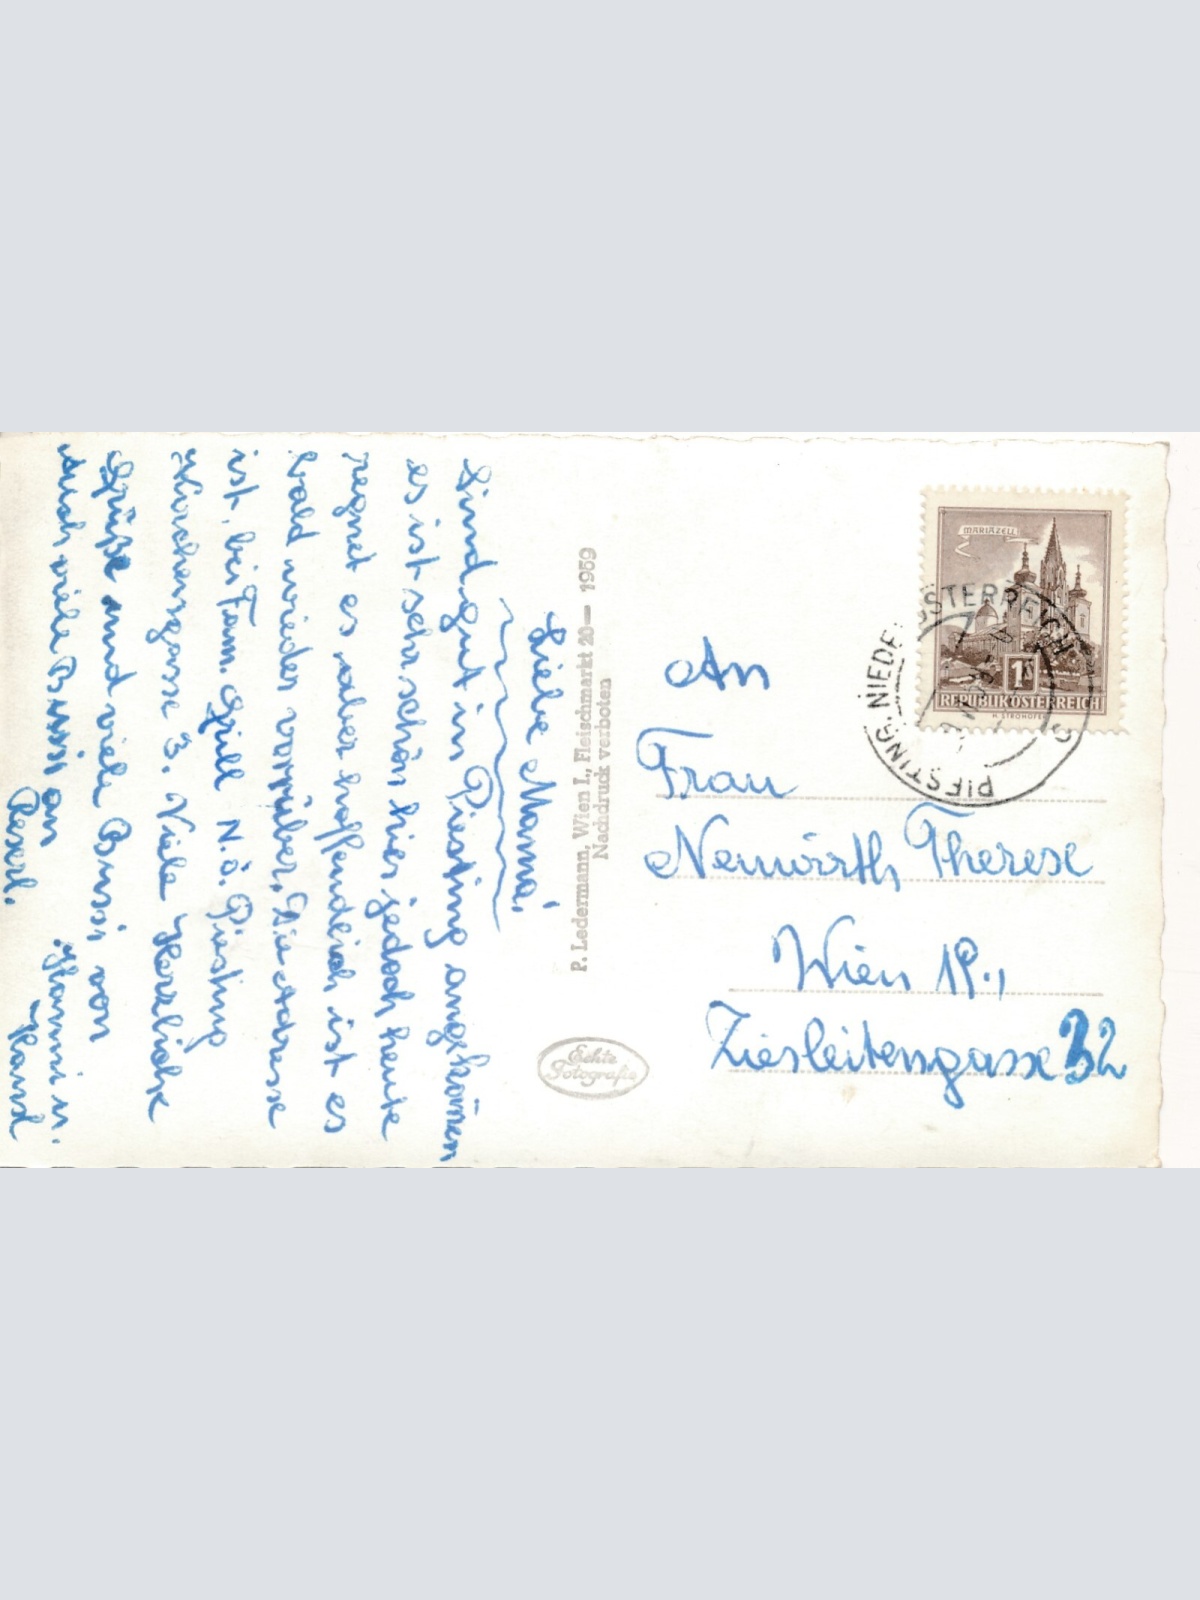 Liebe Mama!
Sind gut in Piesting angekommen
es ist sehr schön hier jedoch heute
regnet es, aber hoffendlich ist es
bald wieder vorrüber. Die Adresse
ist, bei Fam. Grill N.Ö. Piesting
Kirchengasse 3. Viele Herzliche
Grüße und viele Bussi von
Hanni u. Hans
auch viele Bussi an
Reserl.
P. Ledermann, Wien I., Fleischmarkt 20— 1959
Nachdruck verboten
Echte
Fotografie
MARIAZELL
1S
REPUBLIK ÖSTERREICH
H. STROHOFER
PIESTING, NIEDERÖSTERREICH
An
Frau
Neuwirth, Therese
Wien 19.,
Ziesleitengasse 32